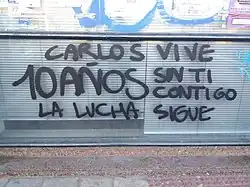 CARLOS VIVE
10 AÑOS SIN TI
CONTIGO
LA LUCHA SIGUE